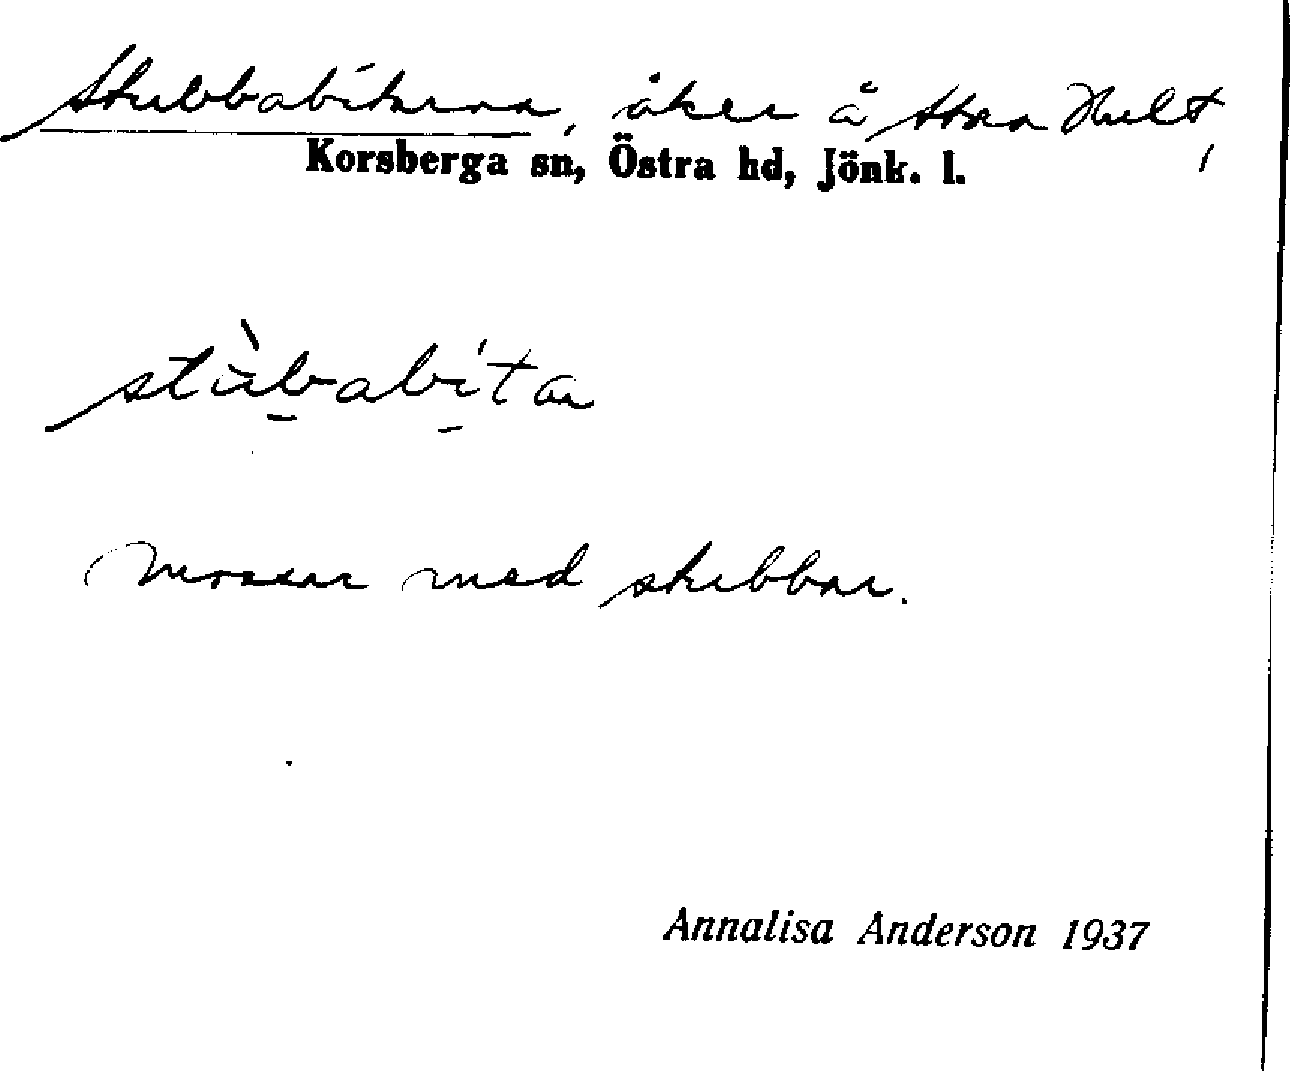 Stubbabitarna, åker å Stora Hult,
Korsberga sn, Östra hd, Jönk. l.
stùbabítar
Mossar med stubbar.
Annalisa Anderson 1937